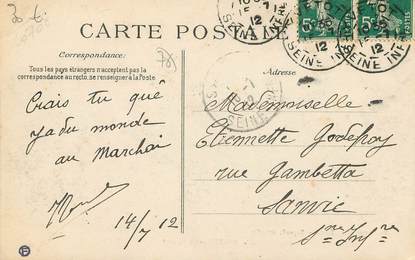 3 t.
78
CARTE POSTALE
Correspondance:
Tous les pays étrangers n'acceptent pas la
correspondance au recto. se renseigner à la Poste
Adresse
Crais tu quê
ya du monde
au Marchai
14/7 12
Mademoiselle
Etiennette Godefroy
rue Gambetta
Sanvic
Sne Infre
5c
5c
12
SEINE INFRE
12
SEINE INFRE
SEINE